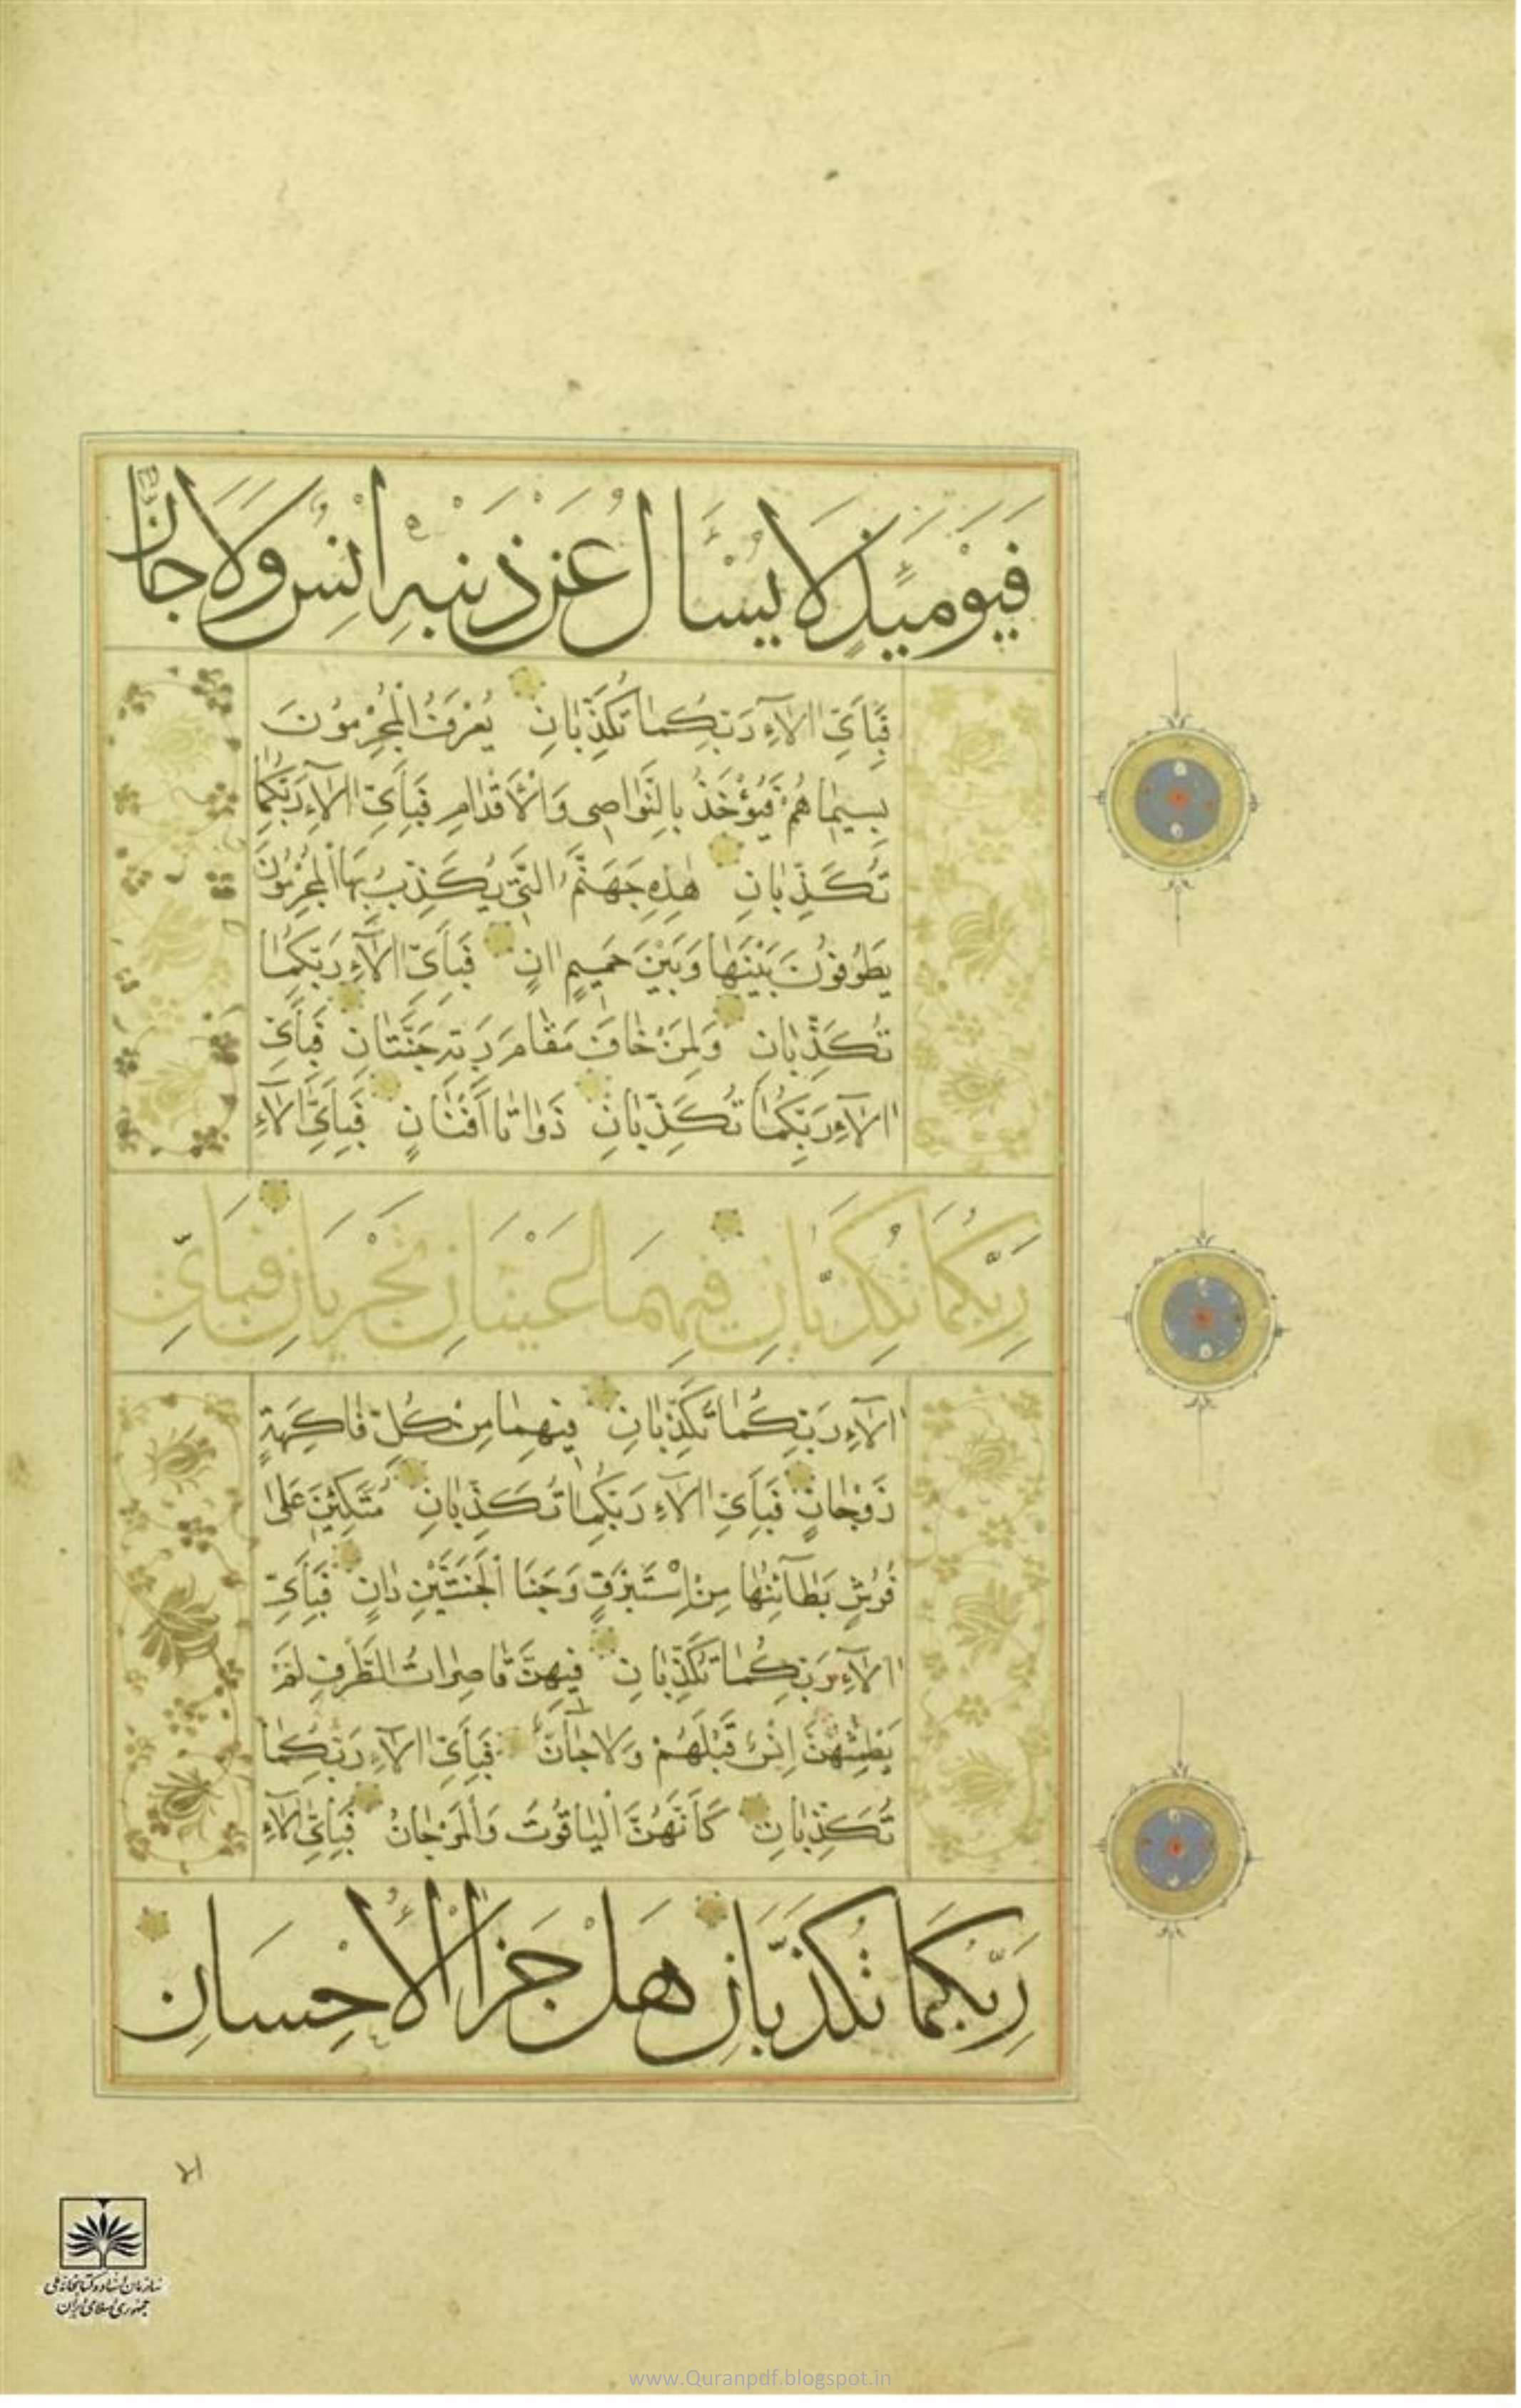 فَيَوْمَئِذٍ لَا يُسْأَلُ عَنْ ذَنْبِهِ اِنْسٌ وَلَا جَانٌّ
فَبِأَىِّ اٰلَآءِ رَبِّكُمٰا تُكَذِّبٰانِ يُعْرَفُ الْمُجْرِمُونَ
بِسِيمٰاهُمْ فَيُؤْخَذُ بِالنَّوٰاصِى وَالْأَقْدٰامِ فَبِأَىِّ اٰلَآءِ رَبِّكُمٰا
تُكَذِّبٰانِ هٰذِهِ جَهَنَّمُ الَّتِى يُكَذِّبُ بِهَا الْمُجْرِمُونَ
يَطُوفُونَ بَيْنَهٰا وَبَيْنَ حَمِيمٍ اٰنٍ فَبِأَىِّ اٰلَآءِ رَبِّكُمٰا
تُكَذِّبٰانِ وَلِمَنْ خٰافَ مَقٰامَ رَبِّهِ جَنَّتٰانِ فَبِأَىِّ
اٰلَآءِ رَبِّكُمٰا تُكَذِّبٰانِ ذَوٰاتٰا أَفْنٰانٍ فَبِأَىِّ اٰلَآءِ
رَبِّكُمَا تُكَذِّبَانِ فِيهِمَا عَيْنَانِ تَجْرِيَانِ فَبِأَىِّ
اٰلَآءِ رَبِّكُمٰا تُكَذِّبٰانِ فِيهِمٰا مِنْ كُلِّ فٰاكِهَةٍ
زَوْجٰانِ فَبِأَىِّ اٰلَآءِ رَبِّكُمٰا تُكَذِّبٰانِ مُتَّكِئِينَ عَلىٰ
فُرُشٍ بَطٰآئِنُهٰا مِنْ إِسْتَبْرَقٍ وَجَنَا الْجَنَّتَيْنِ دٰانٍ فَبِأَىِّ
اٰلَآءِ رَبِّكُمٰا تُكَذِّبٰانِ فِيهِنَّ قٰاصِرٰاتُ الطَّرْفِ لَمْ
يَطْمِثْهُنَّ اِنْسٌ قَبْلَهُمْ وَلَا جٰآنٌّ فَبِأَىِّ اٰلَآءِ رَبِّكُمٰا
تُكَذِّبٰانِ كَأَنَّهُنَّ الْيٰاقُوتُ وَالْمَرْجٰانُ فَبِأَىِّ اٰلَآءِ
رَبِّكُمَا تُكَذِّبَانِ هَلْ جَزَاءُ الْاِحْسَانِ
سازمان اسناد و کتابخانه ملی
جمهوری اسلامی ایران
www.Quranpdf.blogspot.in